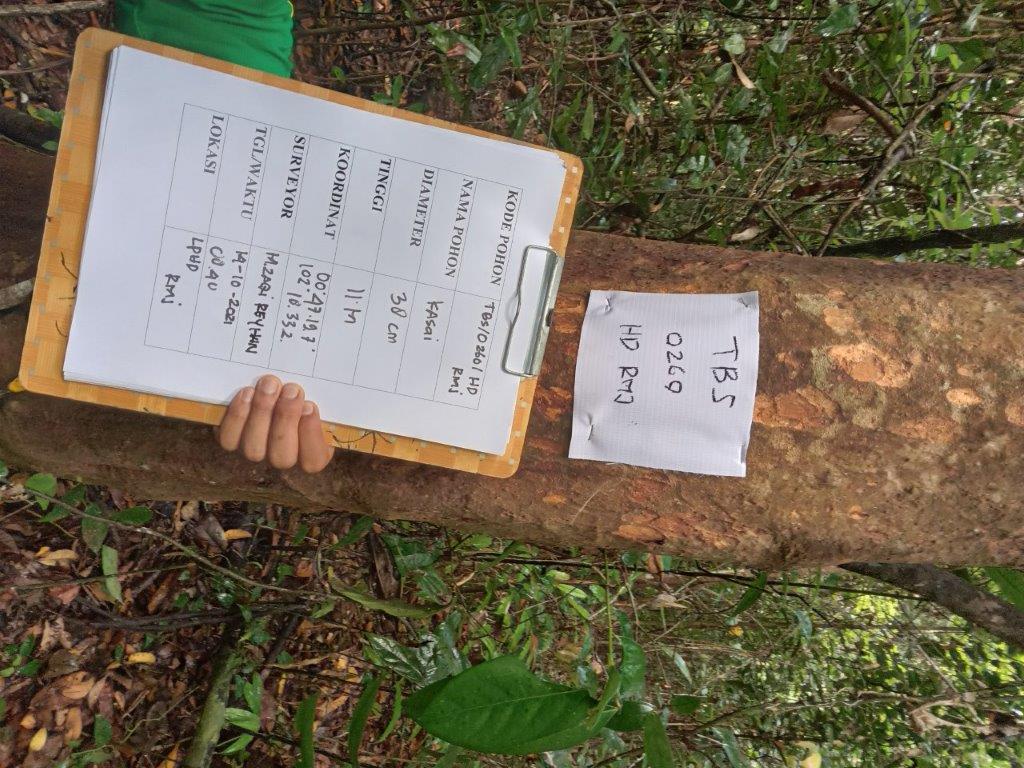 TBS
0260
HD RMJ
KODE POHON TBS/0260/HD
RMJ
NAMA POHON KASAI
DIAMETER 38 cm
TINGGI 11 M
KOORDINAT 00°47.127'
102°18.332.
SURVEYOR M.ZAQI REYHAN
TGL/WAKTU 14-10-2021
08.40
LOKASI LPHD
RMJ